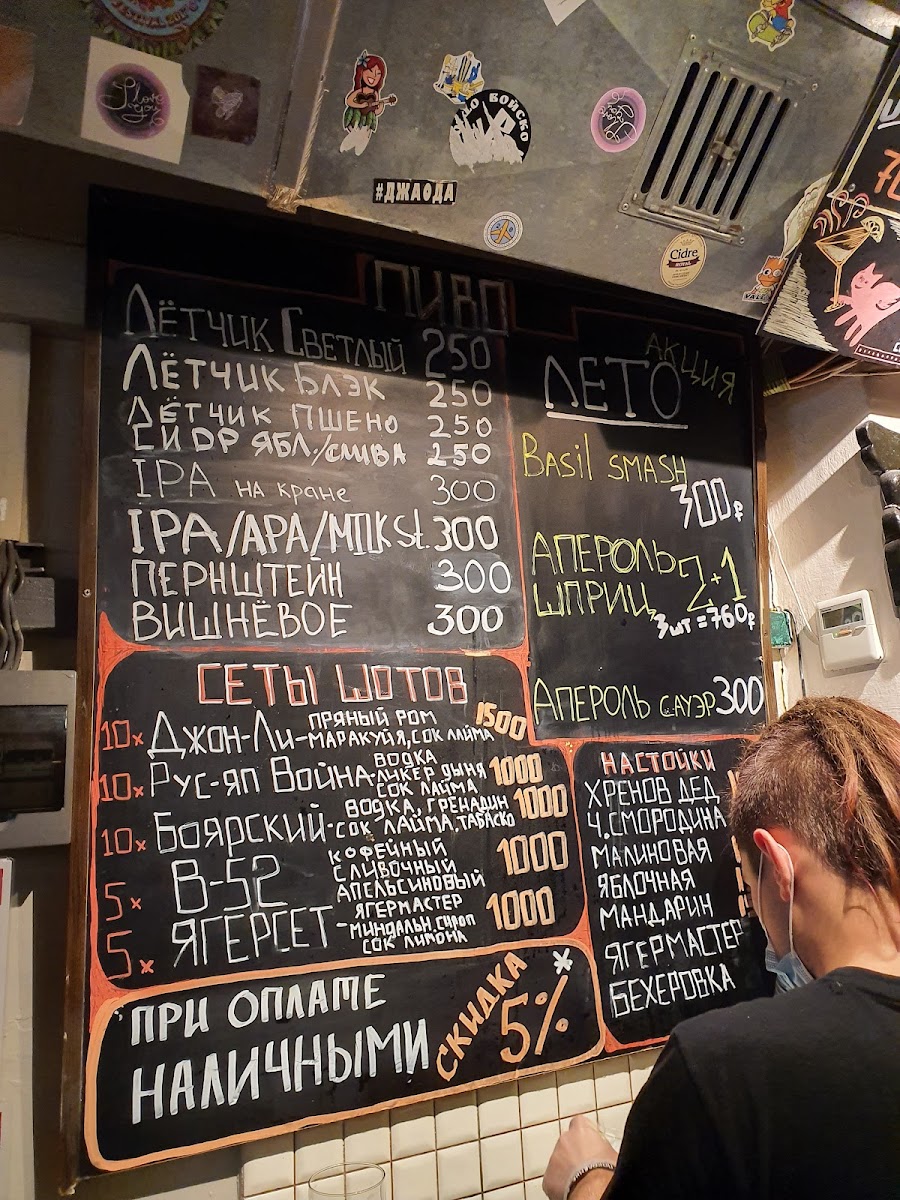 I love you
ВОЙСКО
#ДЖАОДА
Cidre
ПИВО
ЛЁТЧИК СВЕТЛЫЙ 250
ЛЁТЧИК БЛЭК 250
ЛЁТЧИК ПШЕНО 250
СИДР ЯБЛ./СЛИВА 250
IPA НА КРАНЕ 300
IPA/APA/MILK St. 300
ПЕРНШТЕЙН 300
ВИШНЁВОЕ 300
АКЦИЯ
ЛЕТО
BASIL SMASH
300₽
АПЕРОЛЬ
ШПРИЦ 2+1
3 ШТ = 760₽
АПЕРОЛЬ САУЭР 300
СЕТЫ ШОТОВ
10x ДЖОН-ЛИ - ПРЯНЫЙ РОМ 1500
МАРАКУЙЯ, СОК ЛАЙМА
10x РУС-ЯП ВОЙНА - ВОДКА 1000
ЛИКЕР ДЫНЯ
СОК ЛАЙМА
10x БОЯРСКИЙ - ВОДКА, ГРЕНАДИН 1000
СОК ЛАЙМА, ТАБАСКО
5x B-52 КОФЕЙНЫЙ 1000
СЛИВОЧНЫЙ
АПЕЛЬСИНОВЫЙ
5x ЯГЕРСЕТ - ЯГЕРМАСТЕР 1000
МИНДАЛЬН. СИРОП
СОК ЛИМОНА
НАСТОЙКИ
ХРЕНОВ ДЕД
Ч.СМОРОДИНА
МАЛИНОВАЯ
ЯБЛОЧНАЯ
МАНДАРИН
ЯГЕРМАСТЕР
БЕХЕРОВКА
ПРИ ОПЛАТЕ
НАЛИЧНЫМИ
СКИДКА
5%*